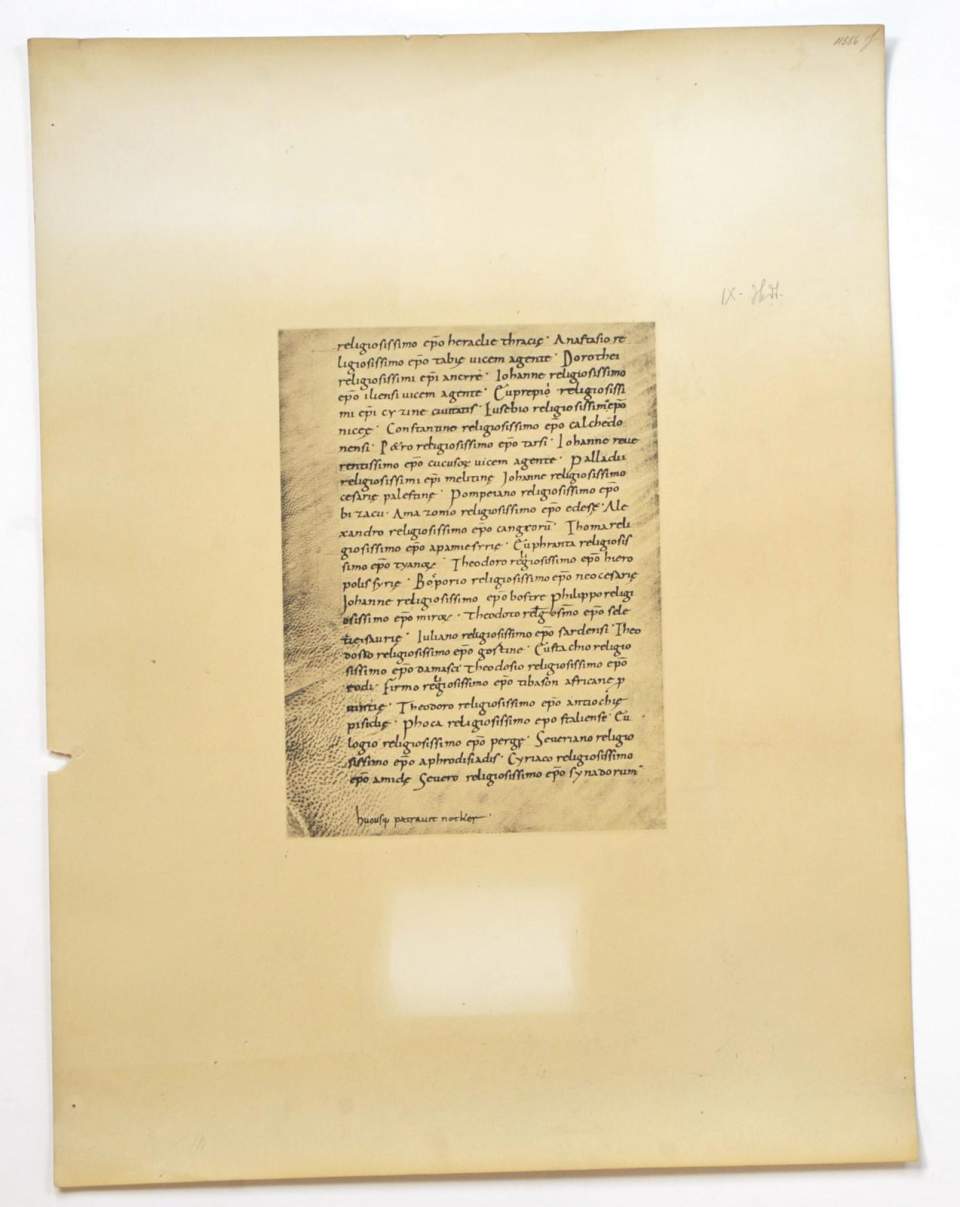 11556
IX-
religiosissimo ep̄o heraclię thracię · Anastasio re
ligiosissimo ep̄o tabię uicem agente · Dorothei
religiosissimi ep̄i ancrrę · Iohanne religiosissimo
ep̄o iliensi uicem agente · Cūprepio religiosissi
mi ep̄i cyzine ciuitatis · Eusebio religiosissim ep̄o
niceę · Constantino religiosissimo ep̄o calchedo
nensi · P&ro religiosissimo ep̄o tarsi · Iohanne reue
rentissimo ep̄o cucusoę uicem agente · Palladii
religiosissimi ep̄i melitinę Iohanne religiosissimo
cesarię palestinę · Pompeiano religiosissimo ep̄o
bizacu · Amazonio religiosissimo ep̄o edesę · Ale
xandro religiosissimo ep̄o cangrorū · Thoma reli
giosissimo ep̄o apamię syrię · Cūphranta religiosis
simo ep̄o tyanoę · Theodoro religiosissimo ep̄o hiero
polis syrię · Bosporio religiosissimo ep̄o neocesarię
Iohanne religiosissimo ep̄o bostre Philippo religi
osissimo ep̄o miroę · Theodoro ep̄o sele
isaurię · Iuliano religiosissimo ep̄o sardensi · Theo
dosio religiosissimo ep̄o gostine · Eustachio religio
sissimo ep̄o damasci Theodosio religiosissimo ep̄o
rodi · firmo religiosissimo ep̄o tibasōn africanę p
uintię · Theodoro religiosissimo ep̄o antiochię
pisidię · Phoca religiosissimo epo staliense · Eu
logio religiosissimo ep̄o pergę · Seueriano religio
sissimo ep̄o aphrodisiadis · Cyriaco religiosissimo
ep̄o amidę Seuero religiosissimo ep̄o synadorum
hucusq; patrauit notker ·